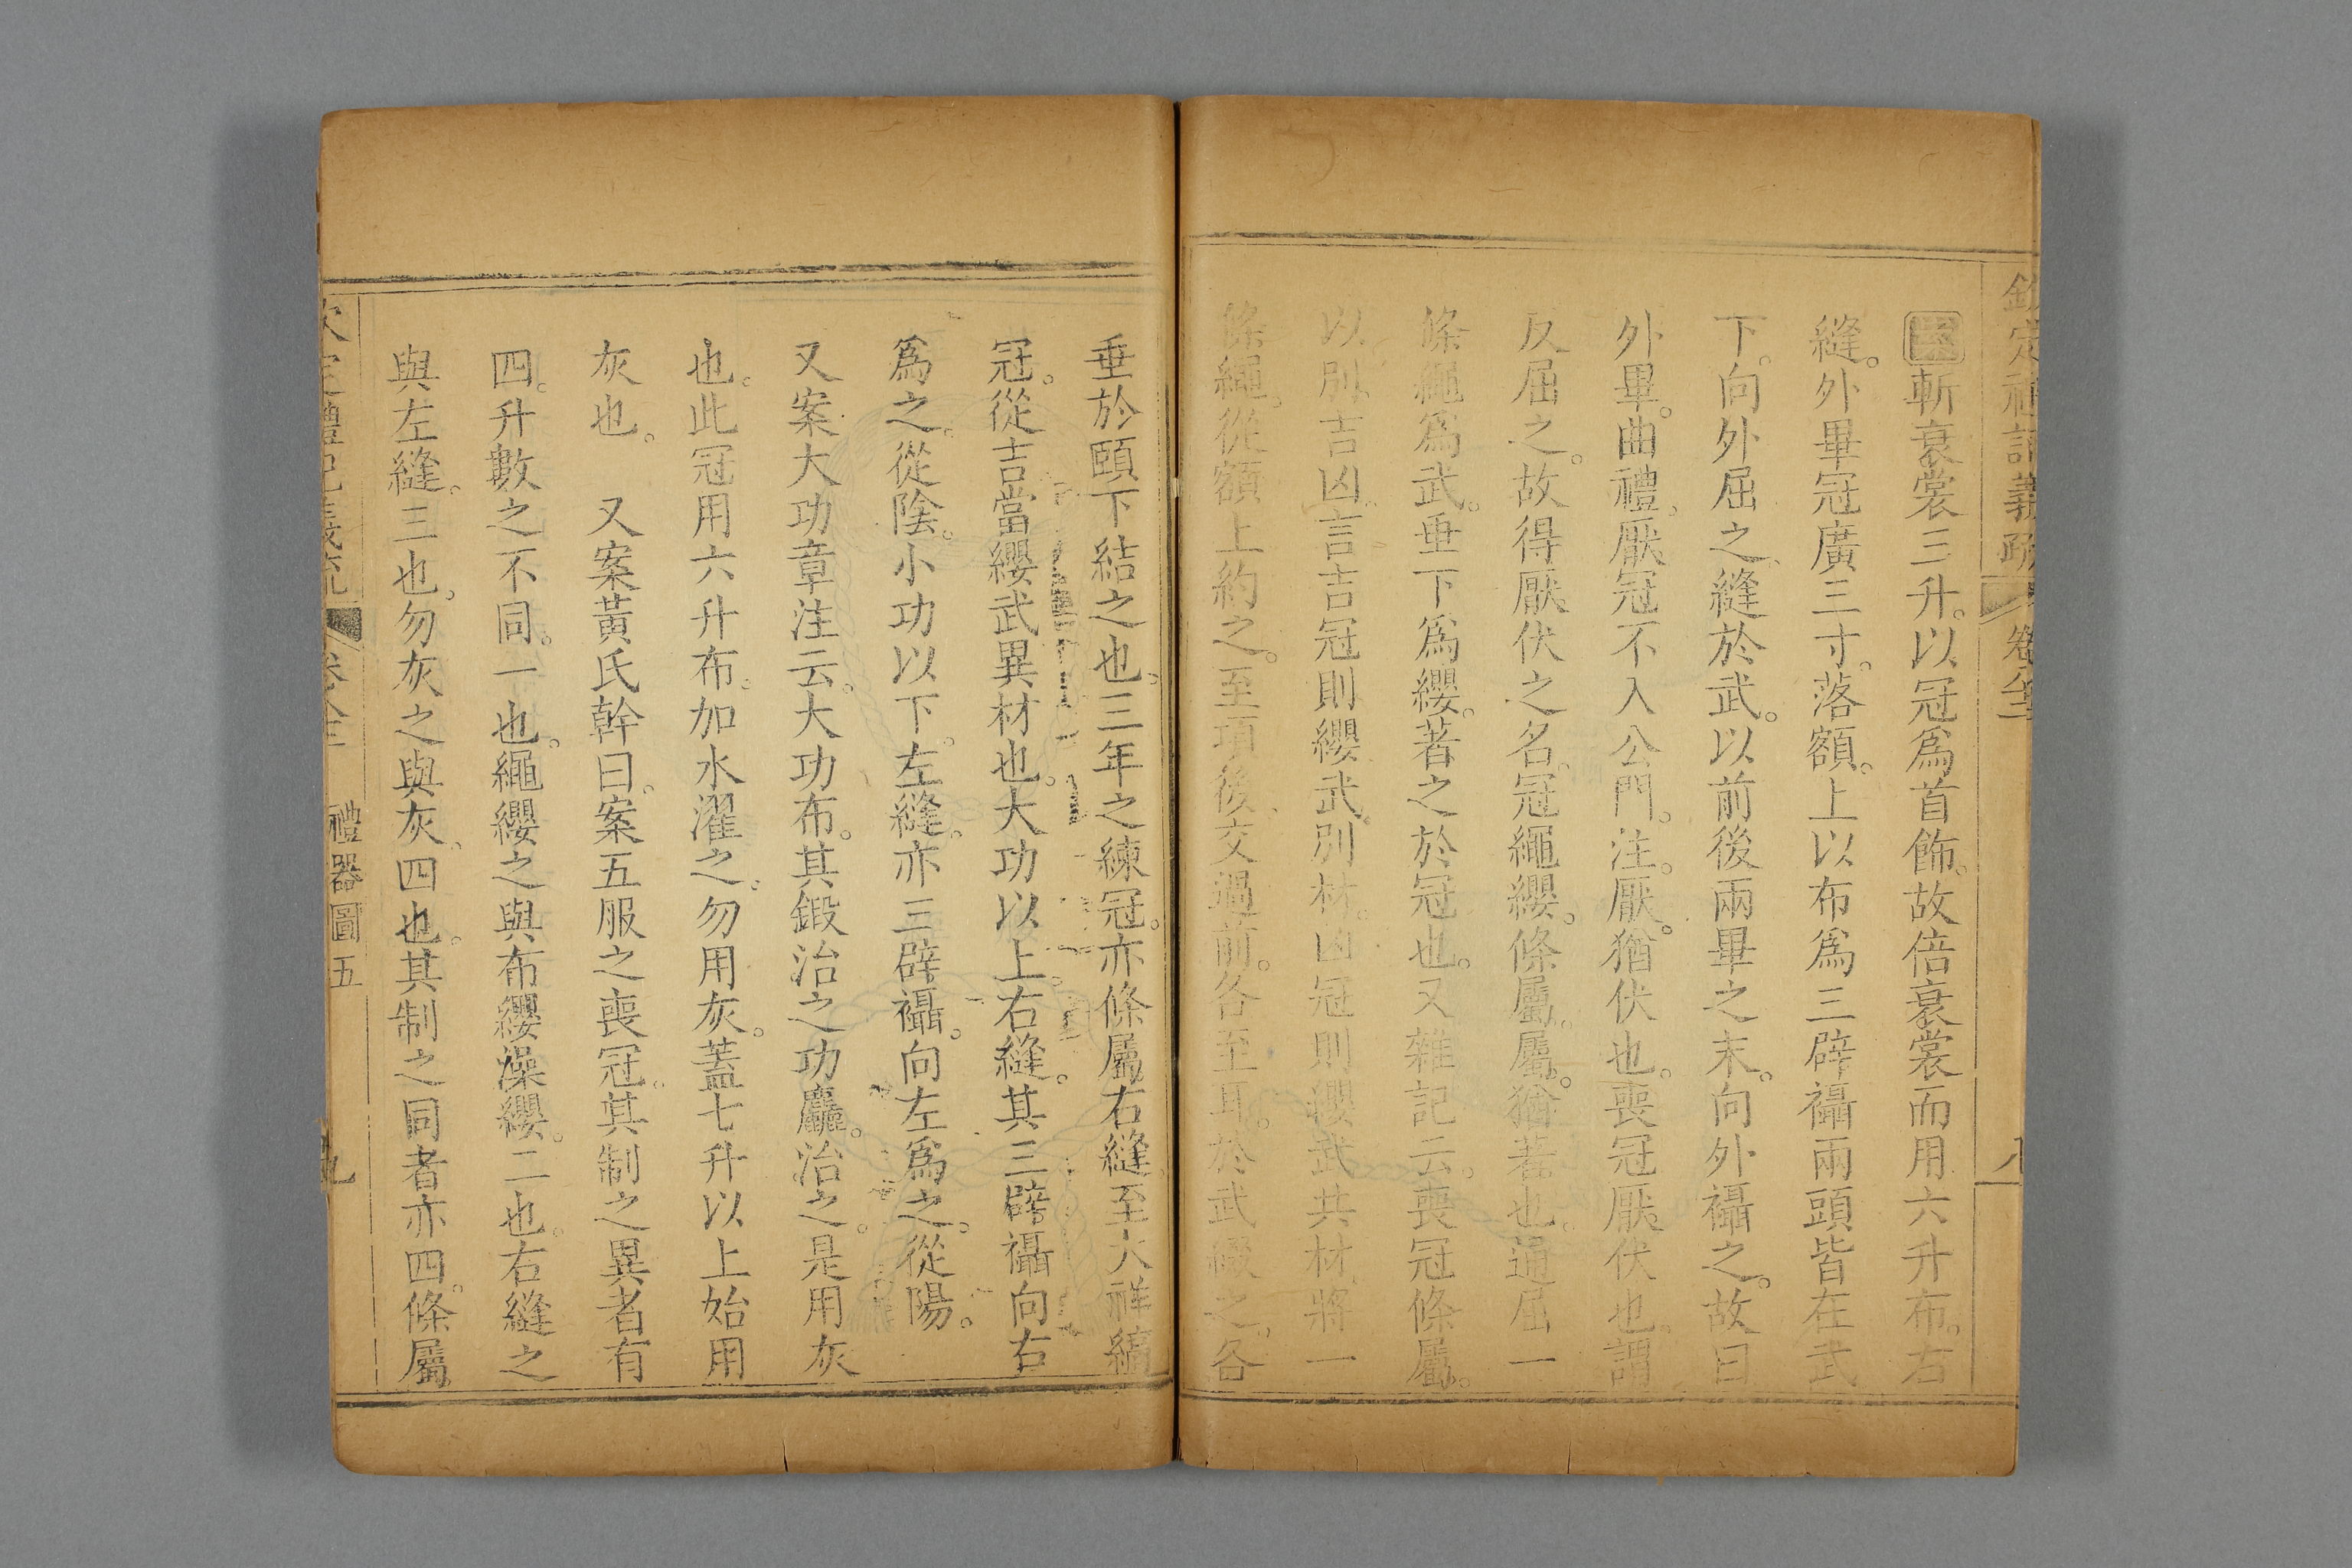 欽定禮記義疏 卷八十二 八
斬衰裳三升。以冠爲首飾。故倍衰裳而用六升布。右
縫。外畢冠廣三寸。落額。上以布爲三辟襵兩頭皆在武
下。向外屈之。縫於武。以前後兩畢之末。向外襵之。故曰
外畢。曲禮。厭冠不入公門。注。厭。猶伏也。喪冠厭伏也。謂
反屈之。故得厭伏之名。冠繩纓。條屬。屬。猶著也。通屈一
條繩爲武。垂下爲纓。著之於冠也。又雜記云。喪冠條屬。
以別吉凶。言吉冠則纓武別材。凶冠則纓武共材。將一
條繩。從額上約之。至項後。交過前。各至耳。於武綴之。各
垂於頤下結之也。三年之練冠。亦條屬右縫。至大祥縞
冠。從吉當纓武異材也。大功以上。右縫。其三辟襵向右
爲之。從陰。小功以下。左縫。亦三辟襵。向左爲之。從陽。
又案大功章注云。大功布。其鍛治之功麤。治之。是用灰
也。此冠用六升布。加水濯之。勿用灰。蓋七升以上始用
灰也。 又案黃氏幹曰。案五服之喪冠。其制之異者有
四。升數之不同。一也。繩纓之與布纓澡纓。二也。右縫之
與左縫。三也。勿灰之與灰。四也。其制之同者亦四。條屬。
欽定禮記義疏 禮器圖五 九